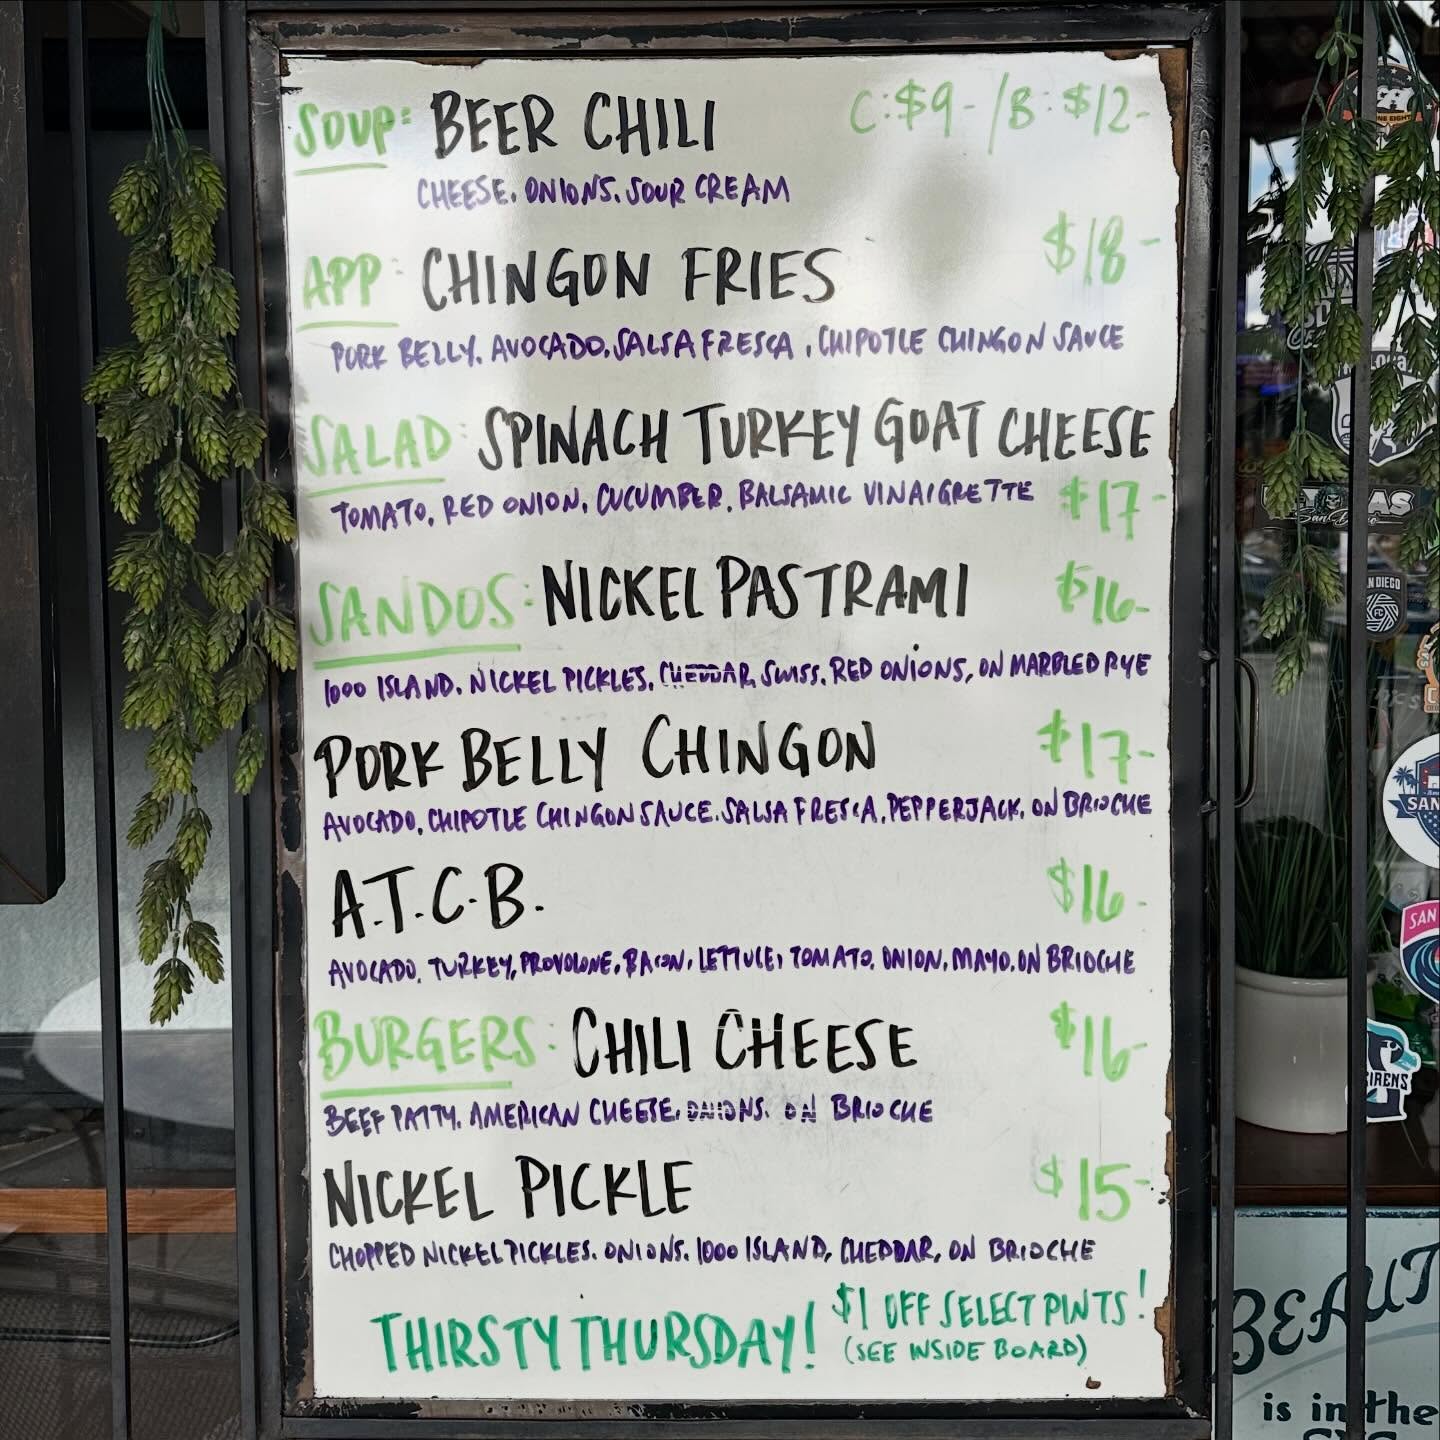 SOUP: BEER CHILI C:$9- / B:$12-
CHEESE, ONIONS, SOUR CREAM
APP: CHINGON FRIES $18-
PORK BELLY, AVOCADO, SALSA FRESCA, CHIPOTLE CHINGON SAUCE
SALAD: SPINACH TURKEY GOAT CHEESE
TOMATO, RED ONION, CUCUMBER, BALSAMIC VINAIGRETTE $17-
SANDOS: NICKEL PASTRAMI $16-
1000 ISLAND, NICKEL PICKLES, CHEDDAR, SWISS, RED ONIONS, ON MARBLED RYE
PORK BELLY CHINGON $17-
AVOCADO, CHIPOTLE CHINGON SAUCE, SALSA FRESCA, PEPPERJACK, ON BRIOCHE
A.T.C.B. $16-
AVOCADO, TURKEY, PROVOLONE, BACON, LETTUCE, TOMATO, ONION, MAYO, ON BRIOCHE
BURGERS: CHILI CHEESE $16-
BEEF PATTY, AMERICAN CHEESE, ONIONS, ON BRIOCHE
NICKEL PICKLE $15-
CHOPPED NICKEL PICKLES, ONIONS, 1000 ISLAND, CHEDDAR, ON BRIOCHE
THIRSTY THURSDAY! $1 OFF SELECT PINTS!
(SEE INSIDE BOARD)
SAN DIEGO
FC
SAN
SAN
SIRENS
BEAUT
is in the